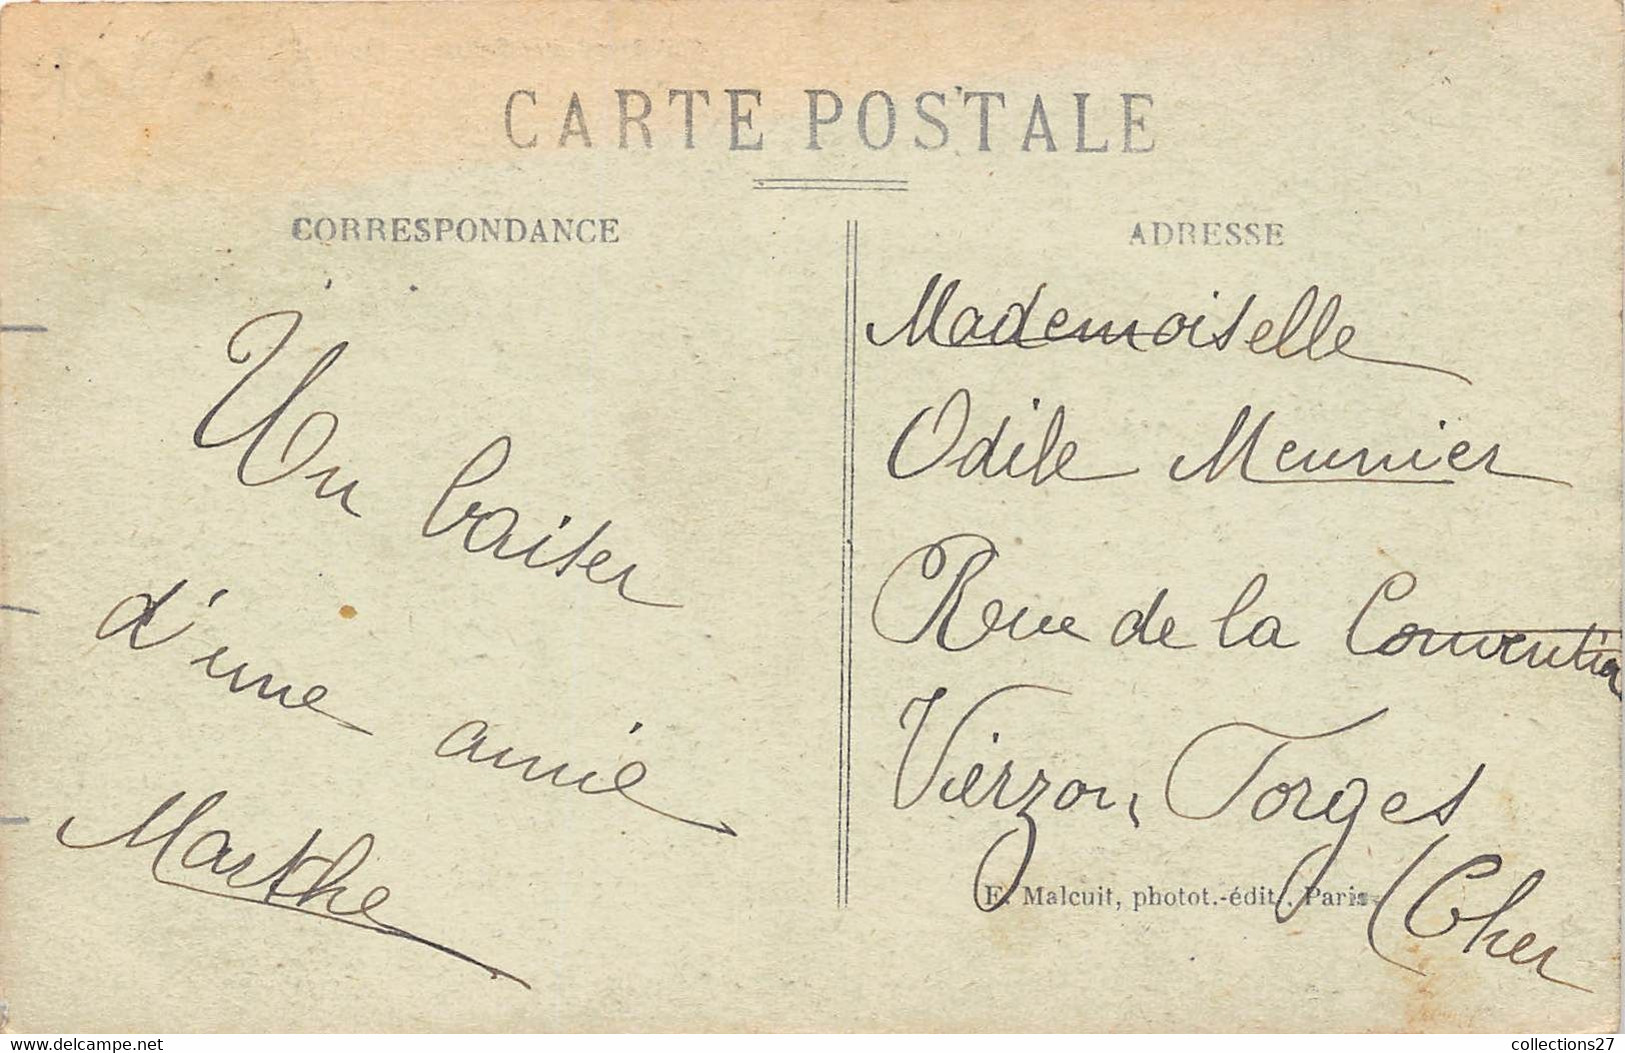 CARTE POSTALE
CORRESPONDANCE
Un baiser
d'une amie
Marthe
ADRESSE
Mademoiselle
Odile Meunier
Rue de la Convention
Vierzon, Forges
(Cher
E. Malcuit, photot.-édit., Paris
www.delcampe.net
collections27